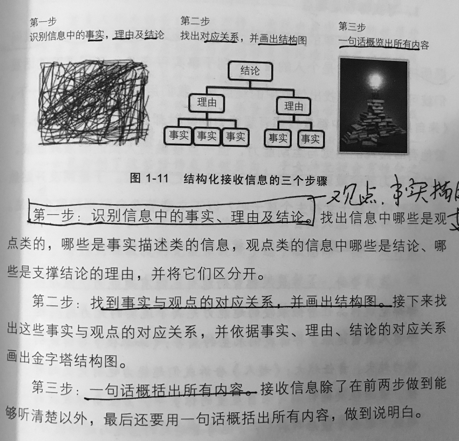 第一步
识别信息中的事实，理由及结论
第二步
找出对应关系，并画出结构图
第三步
一句话概览出所有内容
结论
理由
理由
事实
事实
事实
事实
事实
图 1-11 结构化接收信息的三个步骤
观点、事实描
第一步：识别信息中的事实、理由及结论。找出信息中哪些是观
点类的，哪些是事实描述类的信息，观点类的信息中哪些是结论、哪
些是支撑结论的理由，并将它们区分开。
第二步：找到事实与观点的对应关系，并画出结构图。接下来找
出这些事实与观点的对应关系，并依据事实、理由、结论的对应关系
画出金字塔结构图。
第三步：一句话概括出所有内容。接收信息除了在前两步做到能
够听清楚以外，最后还要用一句话概括出所有内容，做到说明白。